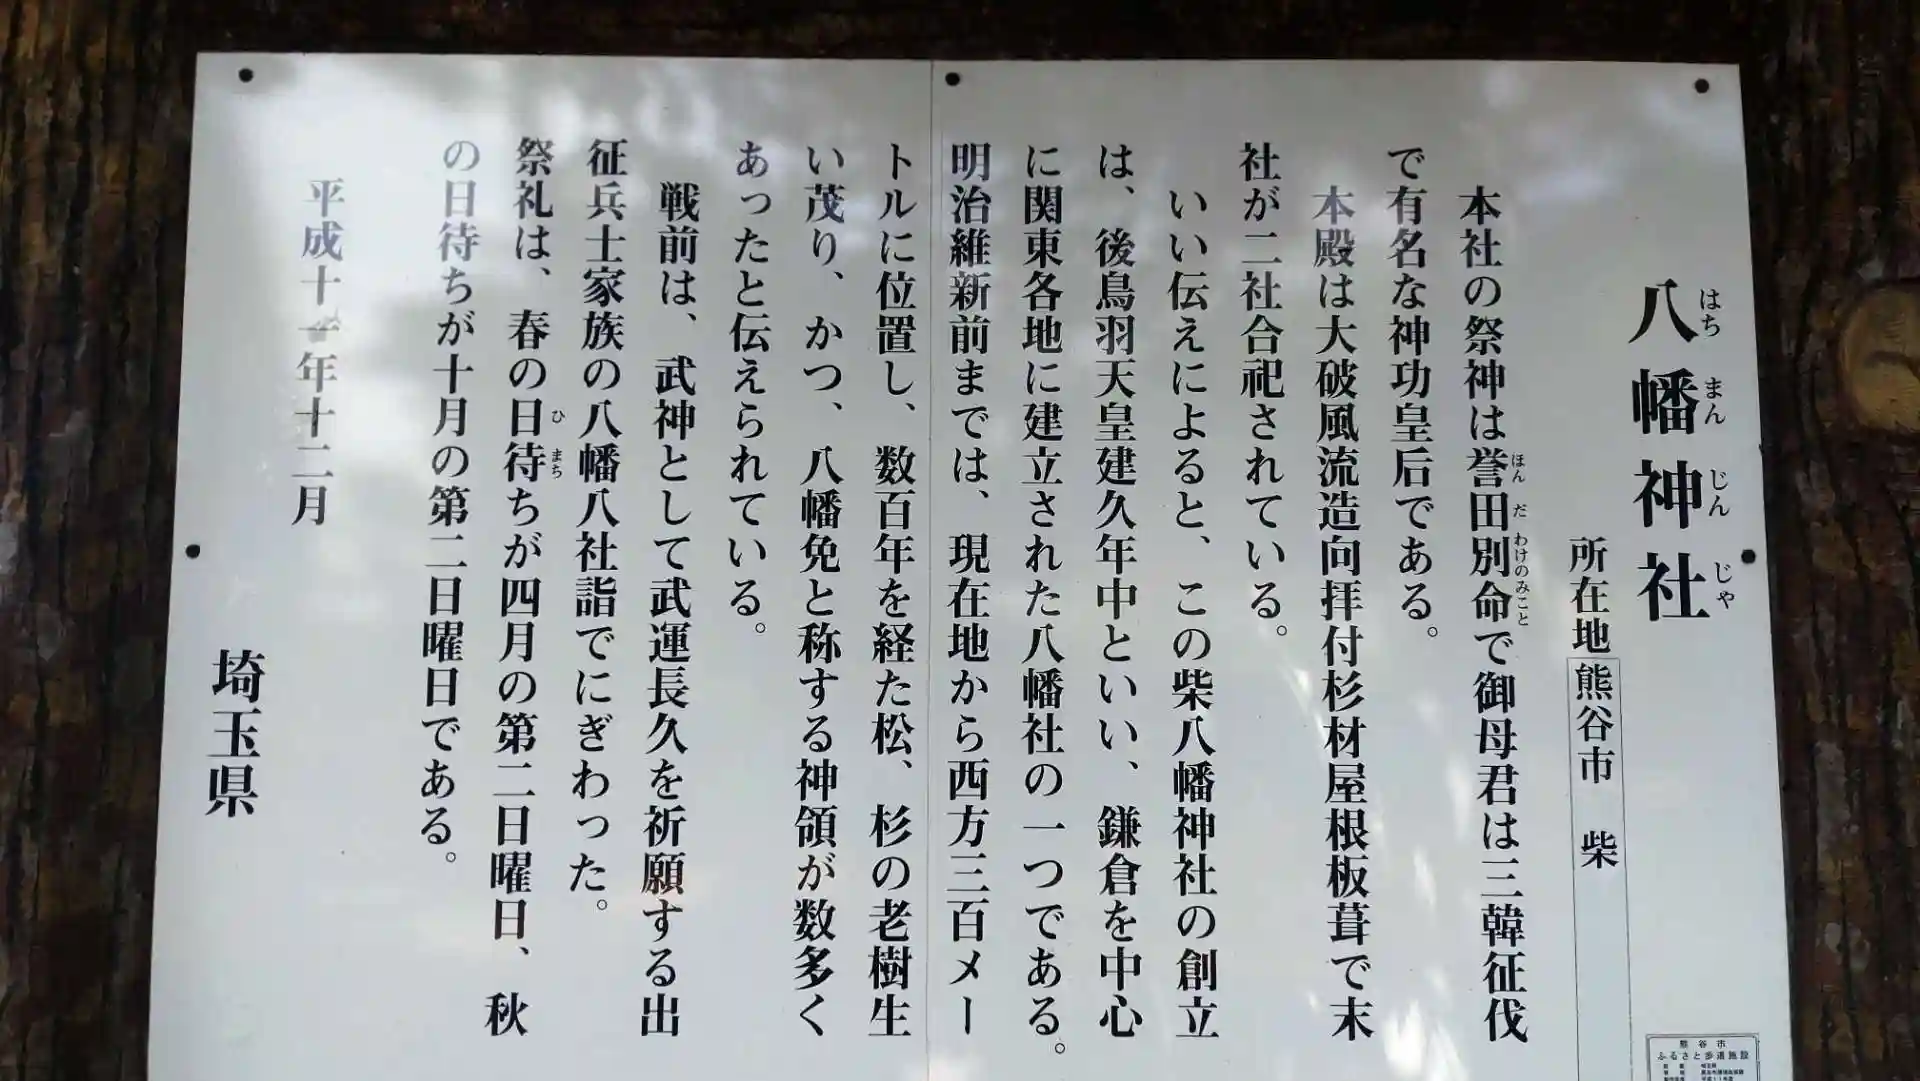 八幡神社
はちまんじんじゃ
所在地 熊谷市 柴
本社の祭神は誉田別命で御母君は三韓征伐
ほんだわけのみこと
で有名な神功皇后である。
本殿は大破風流造向拝付杉材屋根板葺で末
社が二社合祀されている。
いい伝えによると、この柴八幡神社の創立
は、後鳥羽天皇建久年中といい、鎌倉を中心
に関東各地に建立された八幡社の一つである。
明治維新前までは、現在地から西方三百メー
トルに位置し、数百年を経た松、杉の老樹生
い茂り、かつ、八幡免と称する神領が数多く
あったと伝えられている。
戦前は、武神として武運長久を祈願する出
征兵士家族の八幡八社詣でにぎわった。
祭礼は、春の日待ちが四月の第二日曜日、秋
ひまち
の日待ちが十月の第二日曜日である。
平成十一年十二月
埼玉県
熊谷市
ふるさと歩道施設